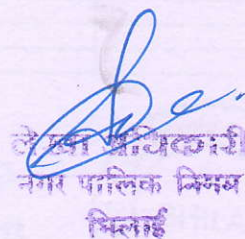 लेखा अधिकारी
नगर पालिक निगम
भिलाई